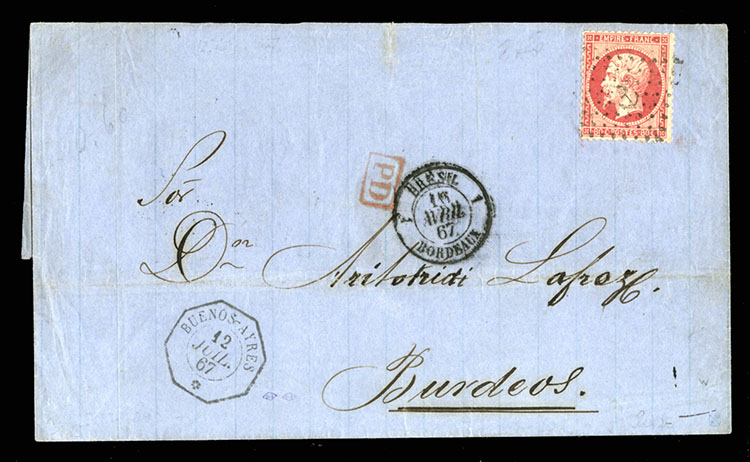 EMPIRE FRANC.
POSTES
PD
BRESIL 1
AVRIL
67
BORDEAUX
Sor
Dn Aritokidi Lopez.
BUENOS-AYRES
12
JUIL.
67
Burdeos.